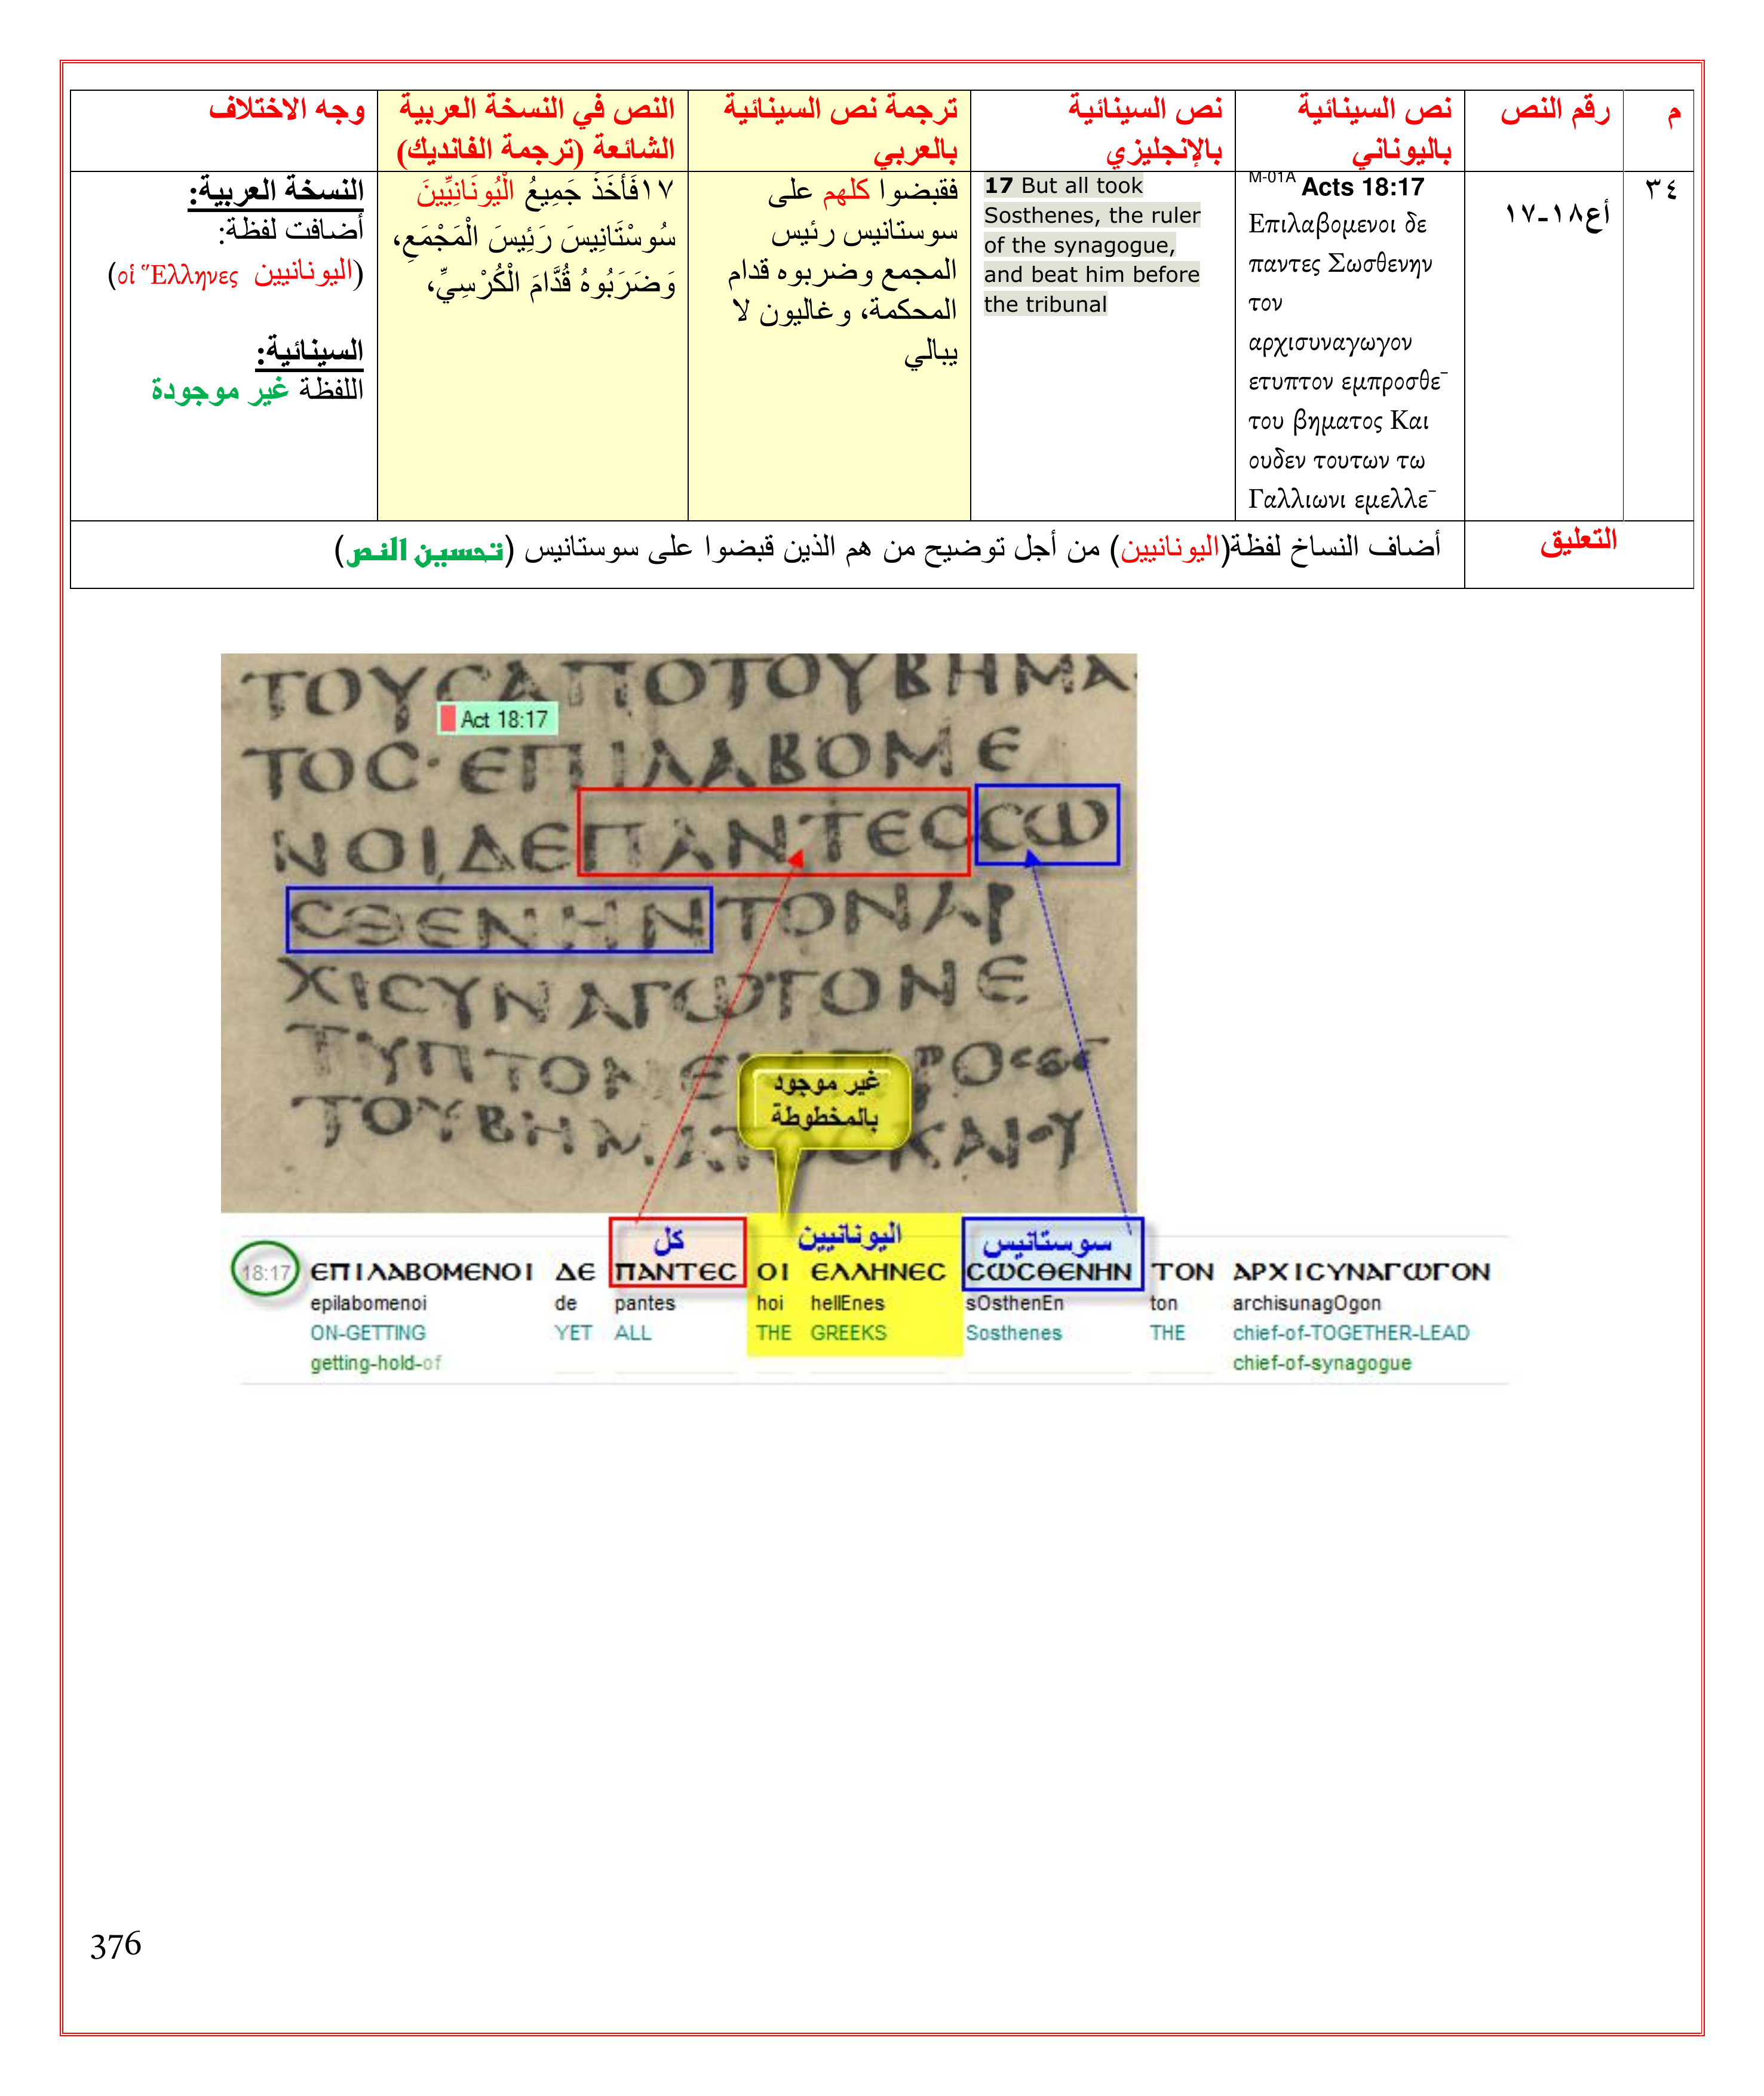 م
رقم النص
نص السينائية
باليوناني
نص السينائية
بالإنجليزي
ترجمة نص السينائية
بالعربي
النص في النسخة العربية
الشائعة (ترجمة الفانديك)
وجه الاختلاف
٣٤
أع١٨-١٧
M-01A Acts 18:17
Επιλαβομενοι δε
παντες Σωσθενην
τον
αρχισυναγωγον
ετυπτον εμπροσθε¯
του βηματος Και
ουδεν τουτων τω
Γαλλιωνι εμελλε¯
17 But all took
Sosthenes, the ruler
of the synagogue,
and beat him before
the tribunal
فقبضوا كلهم على
سوستانيس رئيس
المجمع وضربوه قدام
المحكمة، وغاليون لا
يبالي
١٧فَأَخَذَ جَمِيعُ الْيُونَانِيِّينَ
سُوسْتَانِيسَ رَئِيسَ الْمَجْمَعِ،
وَضَرَبُوهُ قُدَّامَ الْكُرْسِيِّ،
النسخة العربية:
أضافت لفظة:
(اليونانيين οἱ Ἕλληνες)
السينائية:
اللفظة غير موجودة
التعليق
أضاف النساخ لفظة(اليونانيين) من أجل توضيح من هم الذين قبضوا على سوستانيس (تحسين النص)
ΤΟΥCΑΠΟΤΟΥΒΗΜΑ
Act 18:17
ΤΟC·ЄΠΙΛΑΒΟΜЄ
ΝΟΙΔЄΠΑΝΤЄCCѠ
CΘЄΝΗΝΤΟΝΑΡ
ΧΙCΥΝΑΓѠΓΟΝЄ
ΤΥΠΤΟΝЄ ΠΡΟCΘЄ
ΤΟΥΒΗΜΑΤΟCΚΑΙΟΥ
غير موجود
بالمخطوطة
كل
اليونانيين
سوستانيس
18:17 ЄΠΙΛΑΒΟΜЄΝΟΙ ΔЄ ΠΑΝΤЄC ΟΙ ЄΛΛΗΝЄC CѠCΘЄΝΗΝ ΤΟΝ ΑΡΧΙCΥΝΑΓѠΓΟΝ
epilabomenoi de pantes hoi hellEnes sOsthenEn ton archisunagOgon
ON-GETTING YET ALL THE GREEKS Sosthenes THE chief-of-TOGETHER-LEAD
getting-hold-of chief-of-synagogue
376